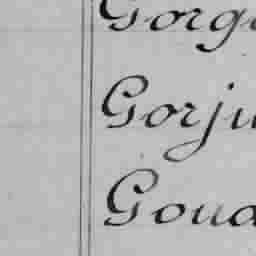 Gorg
Gorju
Goua